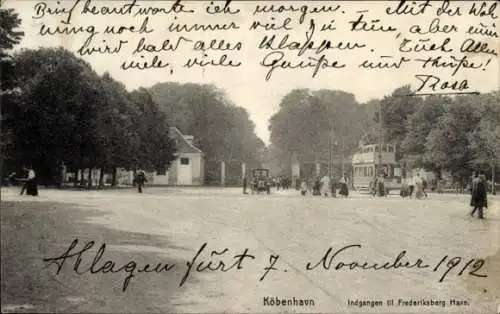 Brief beantworte ich morgen. – Mit der Wohnung
noch immer viel zu tun, aber einmal
wird bald alles klappen. Euch Allen
viele, viele Grüße und Küße!
Rosa
Kopenhagen 7. November 1912
Köbenhavn Indgangen til Frederiksberg Have.